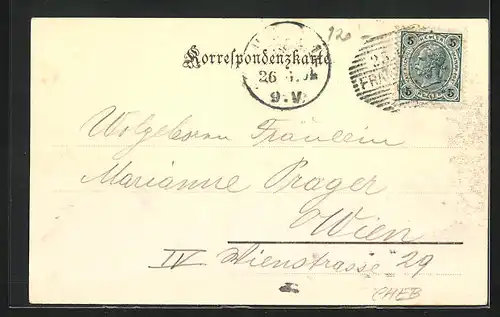 120
Korrespondenzkarte.
26
9.V
5 5
23
FRA
Wolgeboren Fräulein
Marianne Prager
Wien
IV Wienstrasse 29
CHEB